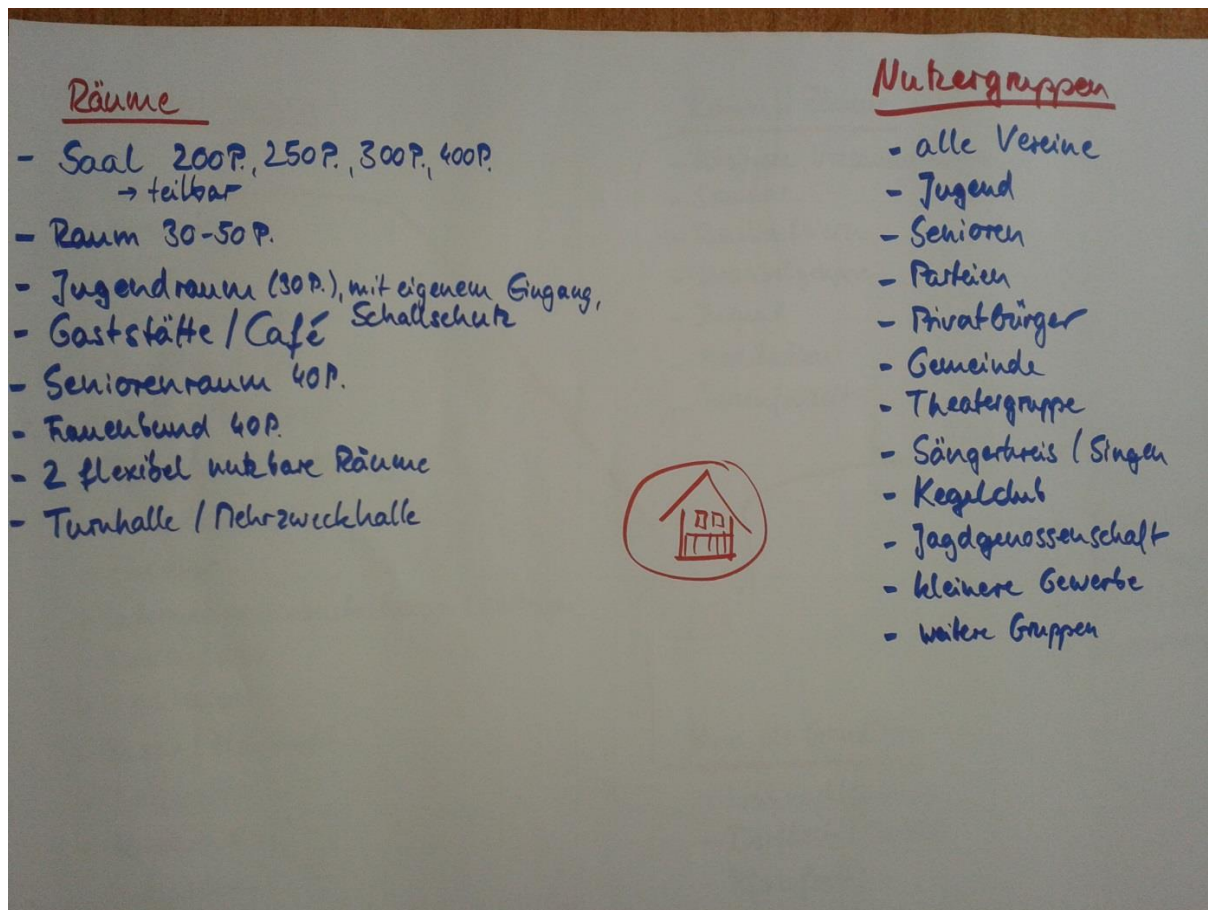 Räume
- Saal 200P., 250P., 300P., 400P.
→ teilbar
- Raum 30-50P.
- Jugendraum (30P.), mit eigenem Eingang,
Schallschutz
- Gaststätte / Café
- Seniorenraum 40P.
- Frauenbund 40P.
- 2 flexibel nutzbare Räume
- Turnhalle / Mehrzweckhalle
Nutzergruppen
- alle Vereine
- Jugend
- Senioren
- Parteien
- Privatbürger
- Gemeinde
- Theatergruppe
- Sängerkreis / Singen
- Kegelclub
- Jagdgenossenschaft
- kleinere Gewerbe
- weitere Gruppen